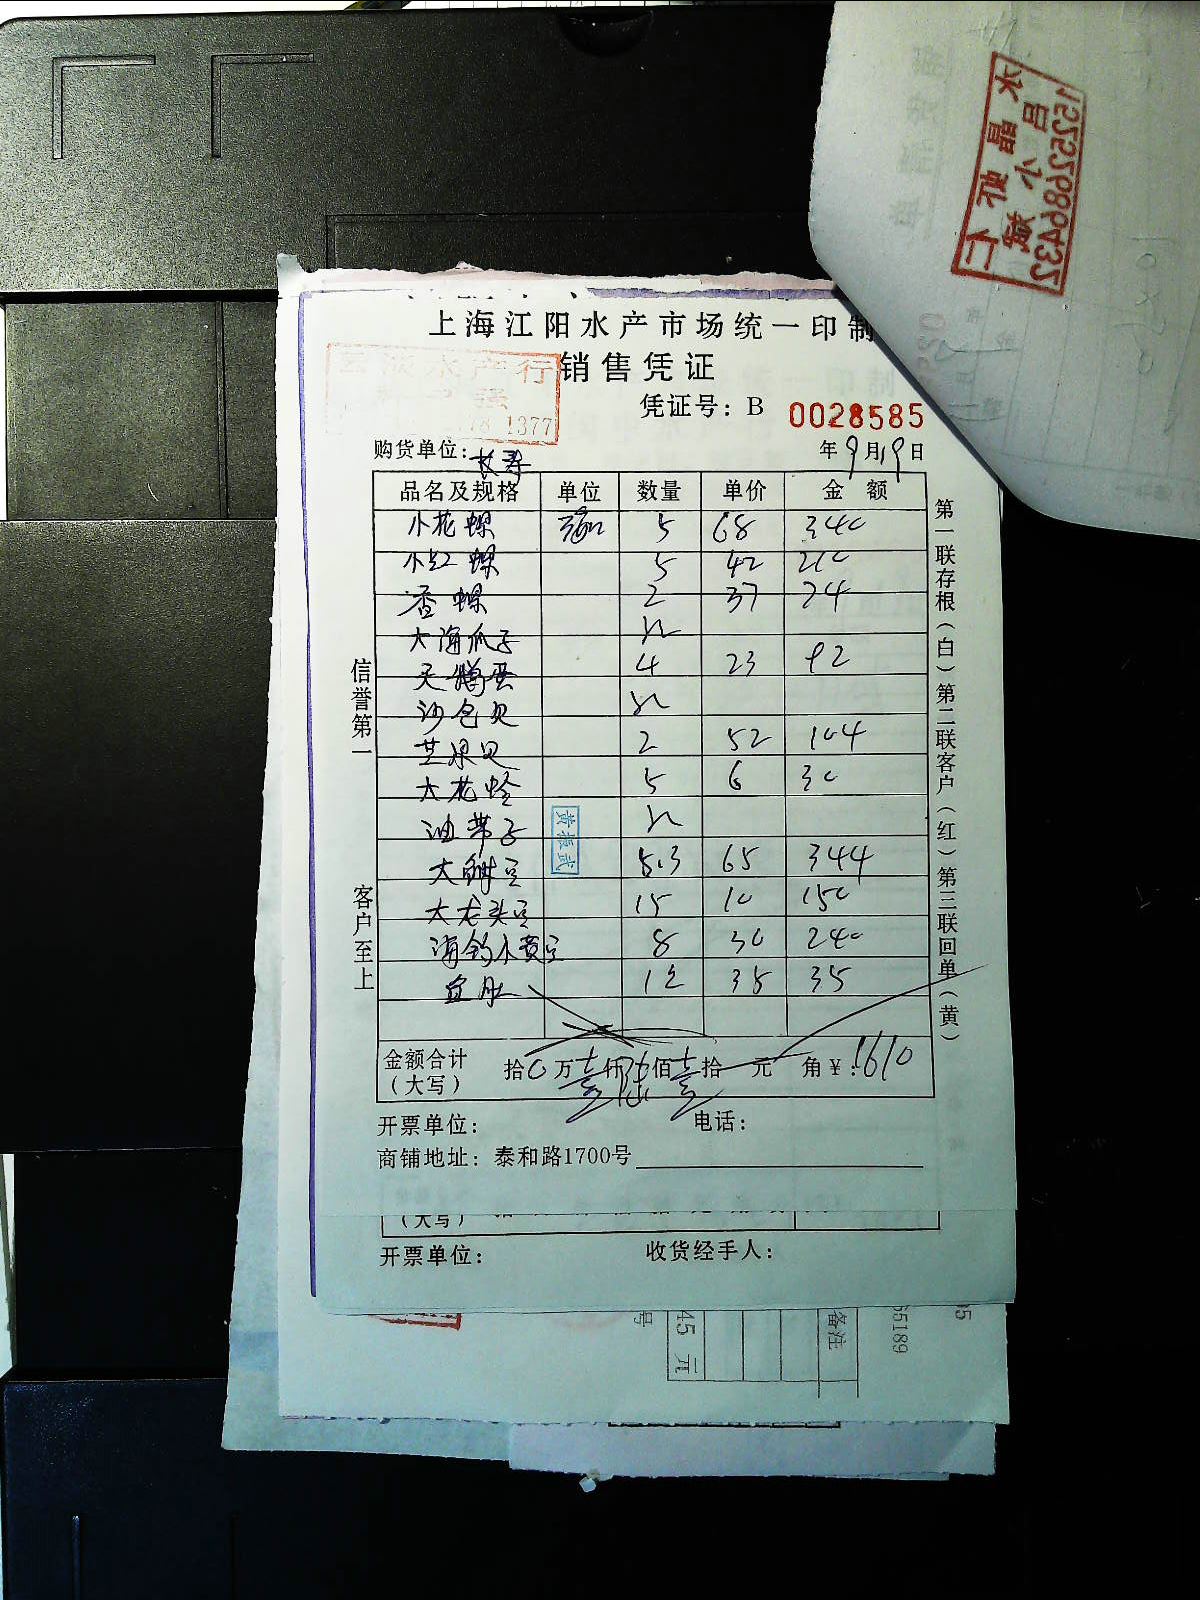 上海江阳水产市场统一印制
销售凭证
水产行
1377
凭证号：B 0028585
购货单位：长寿
年9月19日
品名及规格 单位 数量 单价 金额
小花螺 5 68 340
小红螺 5 42 210
香螺 2 37 74
大海瓜子
天鹅蛋 4 23 92
沙包贝
芒果贝 2 52 104
大花蛤 5 6 30
油带子
黄振武
5.3 65 344
大龙头豆 15 10 150
海钓小黄豆 8 30 240
1 35 35
金额合计（大写） 拾0万壹仟陆佰壹拾 元 角￥：1610
开票单位： 电话：
商铺地址：泰和路1700号
信誉第一
客户至上
第一联存根（白）第二联客户（红）第三联回单（黄）
（大写）
开票单位： 收货经手人：
号
45 元
备注
55189
15252686432